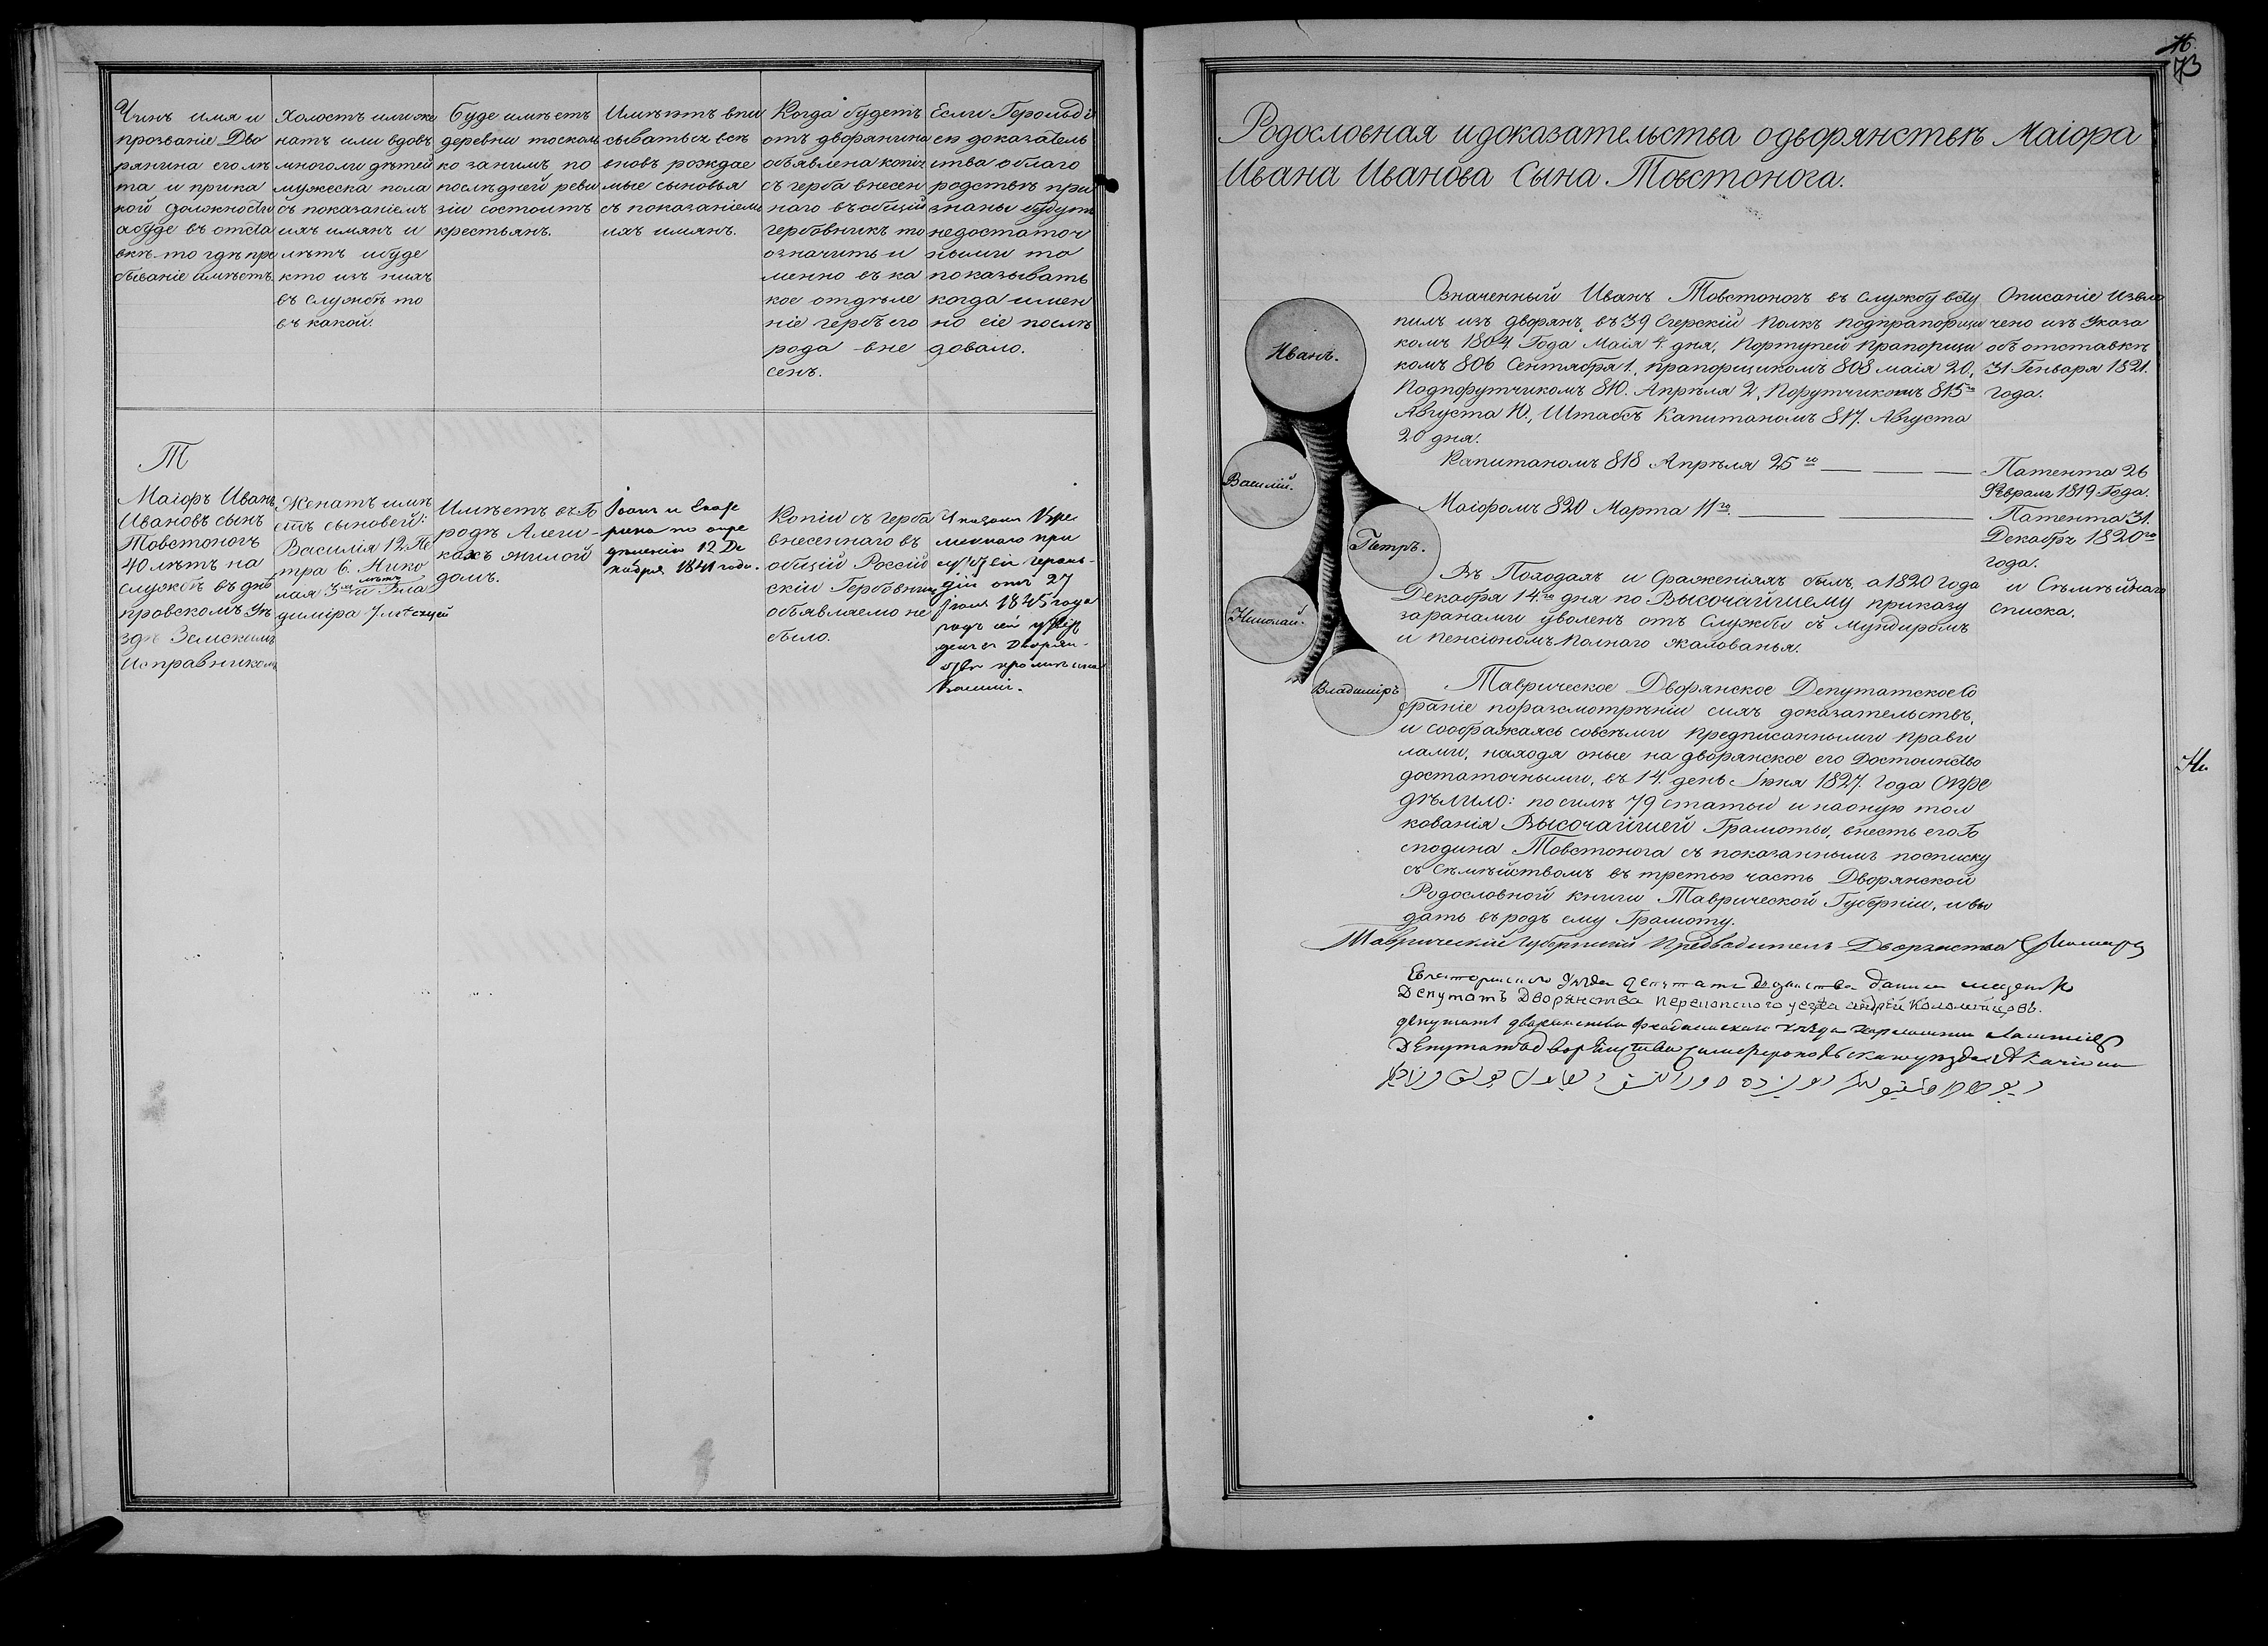 Чинъ имя и
прозваніе Дво
рянина его лѣ
та и при ка
кой должности
а буде въ отста
вкѣ то гдѣ пре
бываніе имѣетъ.
Холостъ или же
натъ или вдовъ
много ли дѣтей
мужеска пола
съ показаніемъ
ихъ имянъ и
лѣтъ и буде
кто изъ нихъ
въ службѣ то
въ какой.
Буде имѣетъ
деревни то сколь
ко за нимъ по
послѣдней реви
зіи состоитъ
крестьянъ.
Имѣютъ впи
сываться всѣ
вновь рождае
мые сыновья
съ показаніемъ
ихъ имянъ.
Когда будетъ
отъ дворянина
объявлена копія
съ герба внесен
наго въ общій
гербовникъ то
означить и
менно въ ка
кое отдѣле
ніе гербъ его
рода вне
сенъ.
Если Герольді
ею доказатель
ства о благо
родствѣ при
знаны будутъ
недостаточ
ными то
показывать
когда имен
но сіе послѣ
довало.
Т
Маіоръ Иванъ
Ивановъ сынъ
Товстоногъ
40 лѣтъ на
службѣ въ Днѣ
провскомъ Уѣ
здѣ Земскимъ
Исправникомъ
Женатъ имѣ
етъ сыновей:
Василія 12. Пе
тра 6. Нико
лая 3хъ лѣтъ и Вла
диміра 7 мѣсяцей
Имѣетъ въ Го
родѣ Алеш-
кахъ жилой
домъ.
по опре
дѣленію 12 Де
кабря 1841 года.
Копіи съ герба
внесеннаго въ
общій Россій
скій Гербовникъ
объявляемо не
было.
Указомъ Вре
меннаго при
Героль-
діи отъ 27
1845 года
родъ сей утверж
денъ въ Дворян-
ствѣ кромѣ сына
73
Родословная и доказательства о дворянствѣ Маіора
Ивана Иванова Сына Товстонога.
Иванъ.
Василій.
Петръ.
Николай.
Владиміръ
Означенный Иванъ Товстоногъ въ службу всту
пилъ изъ дворянъ въ 39 Егерскій полкъ подпрапорщи
комъ 1804. Года Маія 4. дня, Портупей прапорщи
комъ 806 Сентября 1, прапорщикомъ 808 маія 20,
Подпорутчикомъ 810. Апрѣля 2, Порутчикомъ 815го
Августа 10, Штабсъ Капитаномъ 817. Августа
20 дня.
Описаніе извле
чено изъ Указа
объ отставкѣ
31 Генваря 1821.
года.
Капитаномъ 818 Апрѣля 25го
Патента 26
Февраля 1819 Года.
Маіоромъ 820 Марта 11го
Патента 31.
Декабря 1820го
года.
Въ Походахъ и Сраженіяхъ былъ, а 1820 года
Декабря 14го дня по Высочайшему приказу
за ранами уволенъ отъ Службы съ мундиромъ
и пенсіономъ полнаго жалованья.
и Сѣмѣйнаго
списка.
Таврическое Дворянское Депутатское Со
браніе по разсмотрѣніи сихъ доказательствъ,
и соображаясь со всѣми предписанными прави
лами, находя оные на дворянское его Достоинство
достаточными, въ 14. день Іюня 1827. Года Опре
дѣлило: по силѣ 79 статьи и на оную тол
кованія Высочайшей Грамоты, внесть его Го
сподина Товстонога съ показаннымъ по списку
съ Сѣмѣйствомъ въ третью часть Дворянской
Родословной книги Таврической Губерніи, и вы
дать въ родъ ему Грамоту.
Таврическій Губернскій Предводитель Дворянства
Депутатъ Дворянства Перекопского уезда Андрей Коломойцовъ.
депутатъ дворянства Феодосійскаго уѣзда
Депутатъ дворянства Симферопольскаго уѣзда